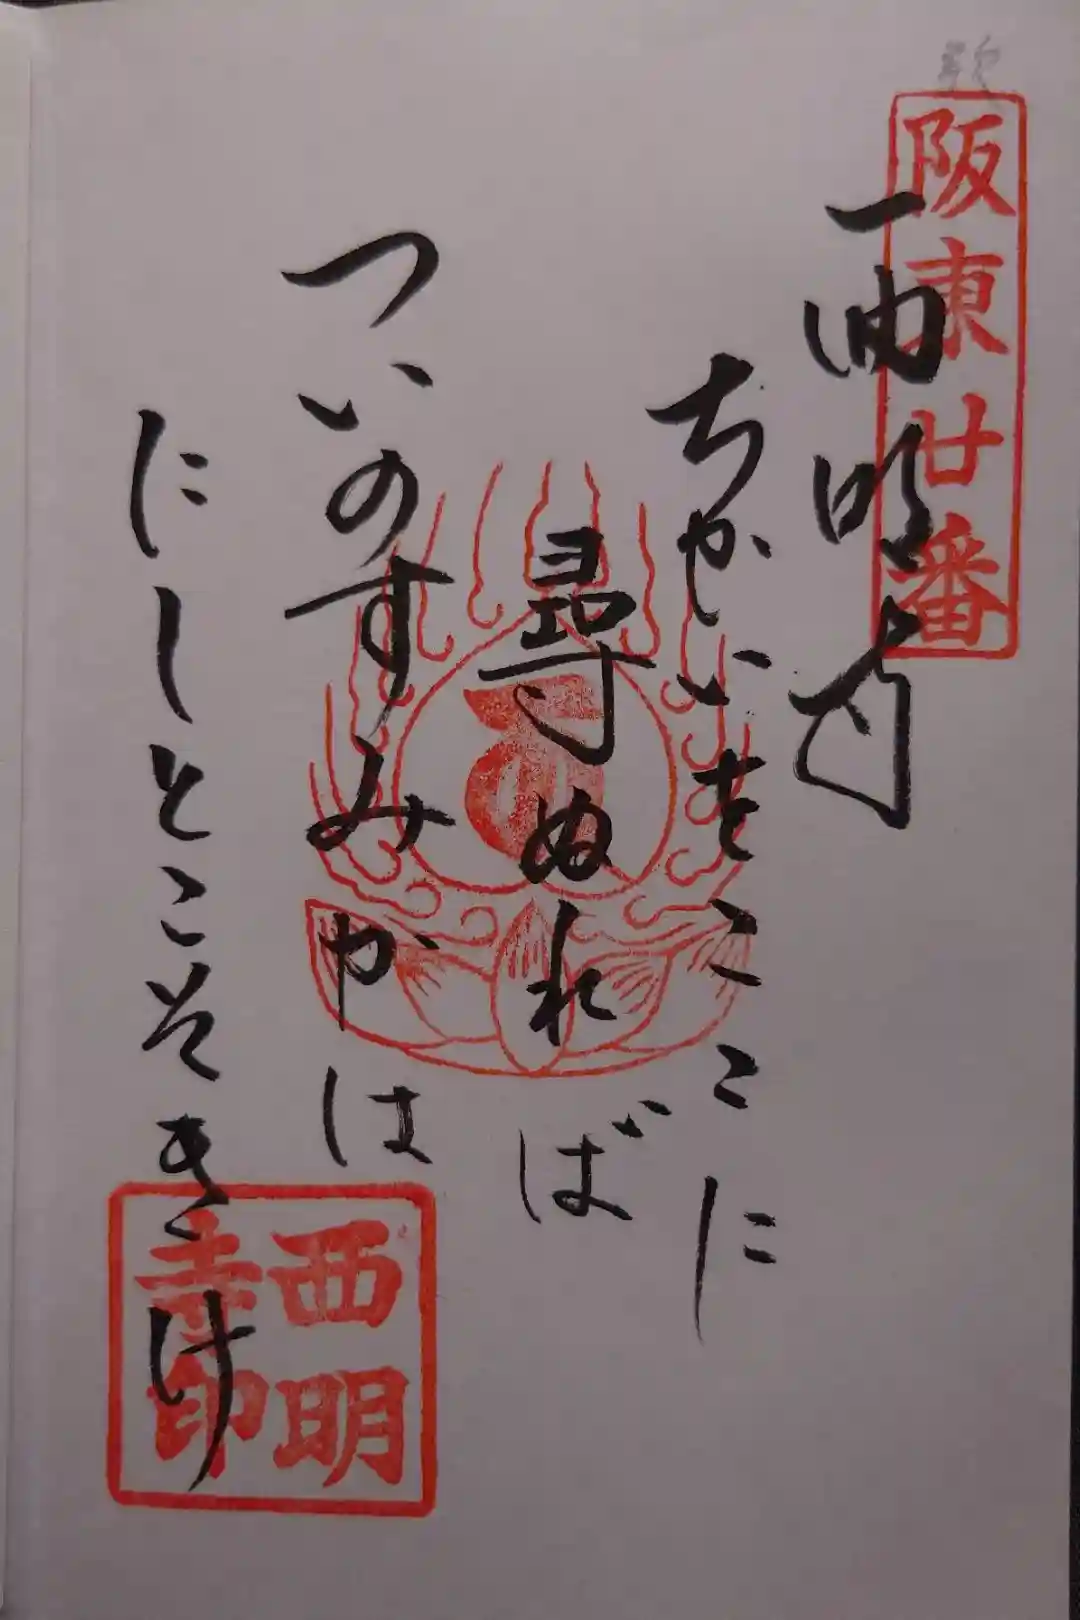 歌
阪東廿番
西明寺
ちかいをここに
尋ぬれば
ついのすみかは
にしとこそきけ
西明
寺印